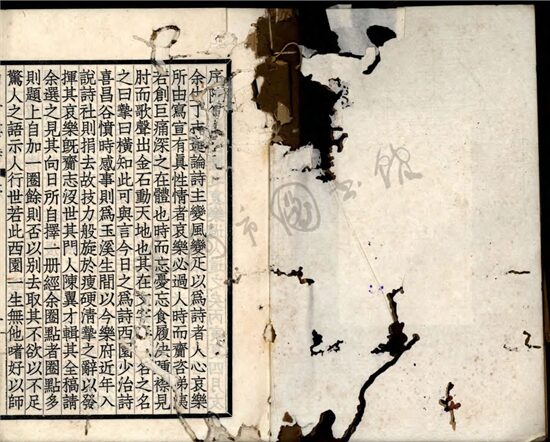 序 哀樂 之矣丙 四月文
余生丁 論詩主變風變疋以爲詩者人心哀樂
所由寫宣有眞性情者哀樂必過人時而齎咨涕洟
若創巨痛深之在體也時而忘憂忘食履決踵襟見
肘而歌聲出金石動天地也其在 名之名
之曰摯曰橫知此可與言今日之爲詩西園少治詩
喜昌谷憤時感事則爲玉溪生間以今樂府近年入
說詩社則捐去故技力般旋於瘦硬淸摯之辭以發
揮其哀樂旣齎志沒世其門人陳翼才輯其全稿請
余選之見其向日所自擇一册經余圈點者圈點多
則題上自加一圈餘則否以別去取其不欲以不足
驚人之語示人行世若此西園一生無他嗜好以師
市圖書館